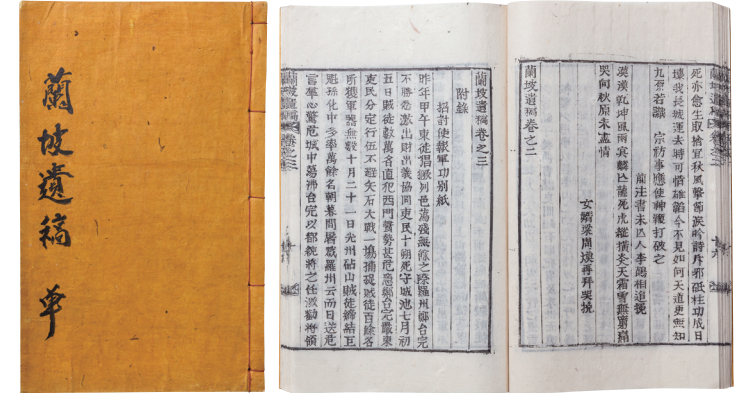 蘭坡遺稿 單
死亦愈生取捨宜秋風擊節淚吟詩斥邪砥柱功成日
壞我長城運去時可惜雄韜今不見如何天道更無知
九若識 宗祊事應使神鞭打破之
前法書未亾人李鶴相追挽
漠漠乾坤風雨冥麟亾龍死虎縱橫炎天霜雪無窮痛
哭向秋原未盡情
女壻梁周煥再拜哭挽
蘭坡遺稿卷之二
蘭坡遺稿卷之三
附錄
招討使報軍功別紙
昨年甲午東徒猖獗列邑蕩殘無餘之際羅州鄭台完
不勝忿激出財出義協同吏民十朔死守城池七月初
五日賊徒數萬名直犯西門賊勢甚危急鄭台完嚴束
吏民分定行伍不避矢石大戰一塲捕捉賊徒百餘名
所獲軍器無數十月二十一日光州砧山賊徒締結巨
魁孫化中多率萬餘名朝暮間屠戮羅州云而日送危
言羣心驚危城中鼎沸台完以都統將之任激勸將領